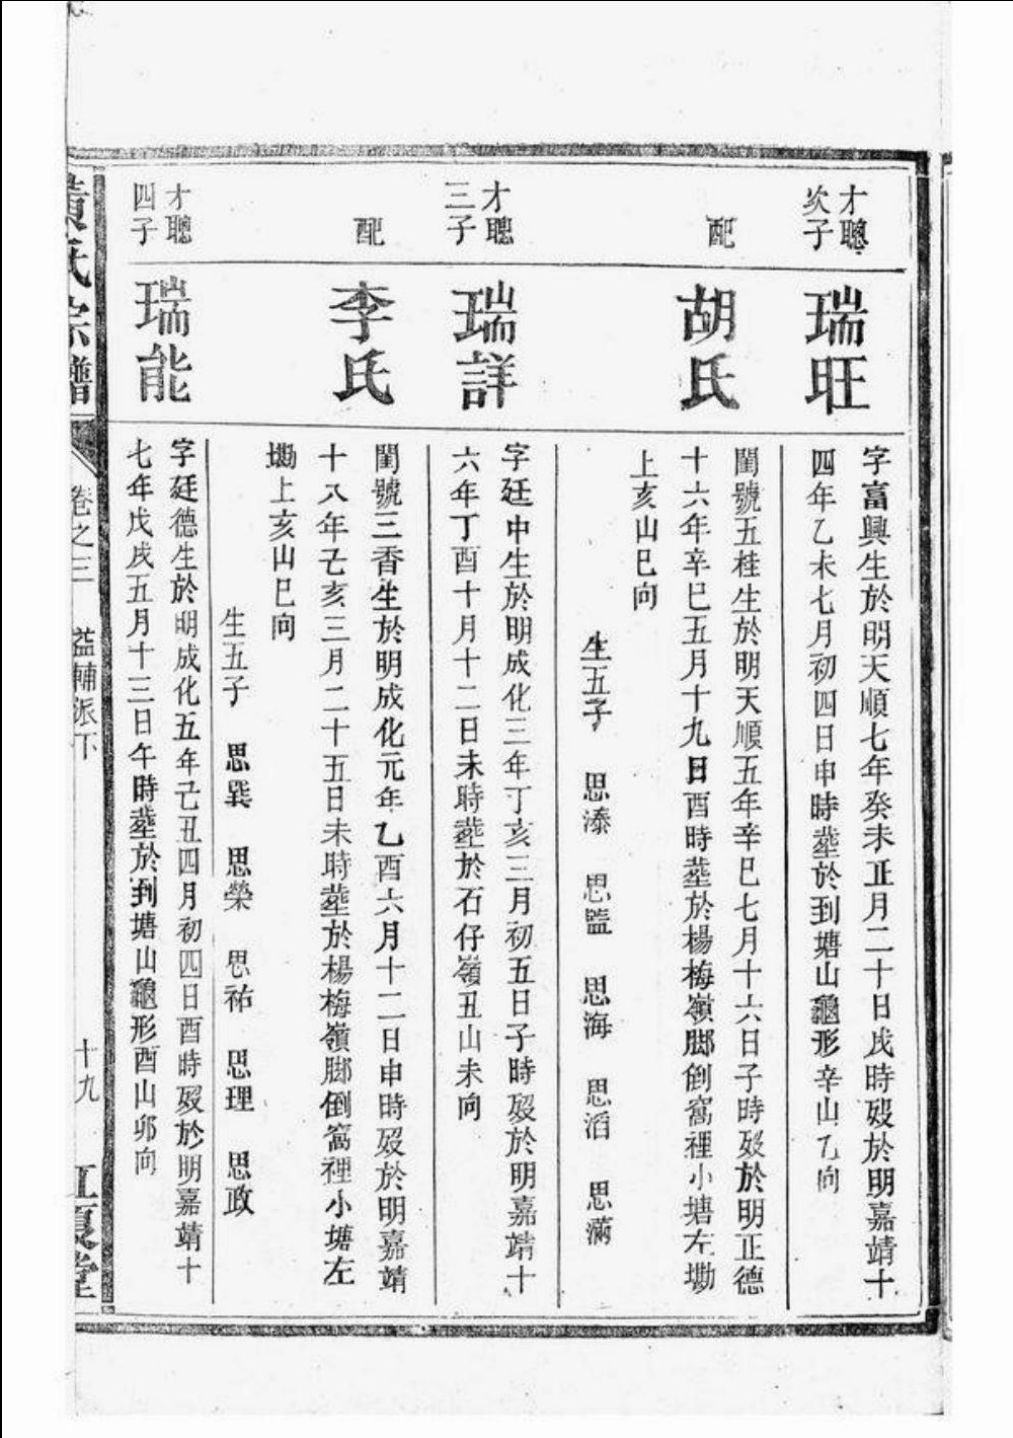 才聰
次子
瑞旺
字富興生於明天順七年癸未正月二十日戌時歿於明嘉靖十
四年乙未七月初四日申時塟於到塘山龜形辛山乙向
配
胡氏
閨號五桂生於明天順五年辛巳七月十六日子時歿於明正德
十六年辛巳五月十九日酉時塟於楊梅嶺脚倒窩裡小塘左塝
上亥山巳向
生五子 思漆 思監 思海 思滔 思滿
才聰
三子
瑞詳
字廷中生於明成化三年丁亥三月初五日子時歿於明嘉靖十
六年丁酉十月十二日未時塟於石仔嶺丑山未向
配
李氏
閨號三香生於明成化元年乙酉六月十二日申時歿於明嘉靖
十八年己亥三月二十五日未時塟於楊梅嶺脚倒窩裡小塘左
塝上亥山巳向
生五子 思巽 思榮 思祐 思理 思政
才聰
四子
瑞能
字廷德生於明成化五年己丑四月初四日酉時歿於明嘉靖十
七年戊戌五月十三日午時塟於到塘山龜形酉山卯向
黃氏宗譜 卷之三 益輔派下 十九 江夏堂